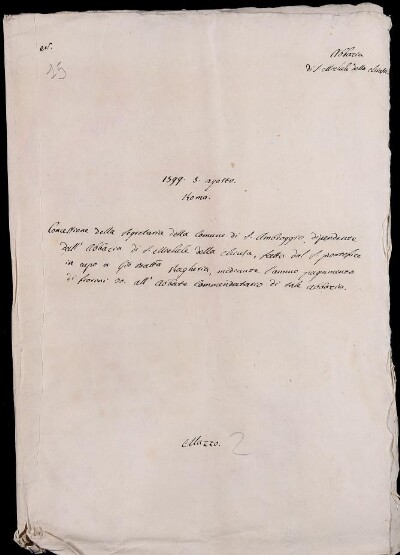 Abbazia
di S. Michele della Chiusa
1599. 3. agosto.
Roma.
Concessione della Segretaria della Comune di S. Ambroggio, dipendente
dall' Abbazia di S. Michele della Chiusa, fatta dal S. Pontefice
in capo a Gio Batta mediante l'annuo pagamento
di fiorini 30. all' Abbate Commendatario di tale Abbazia.
Mazzo. 2